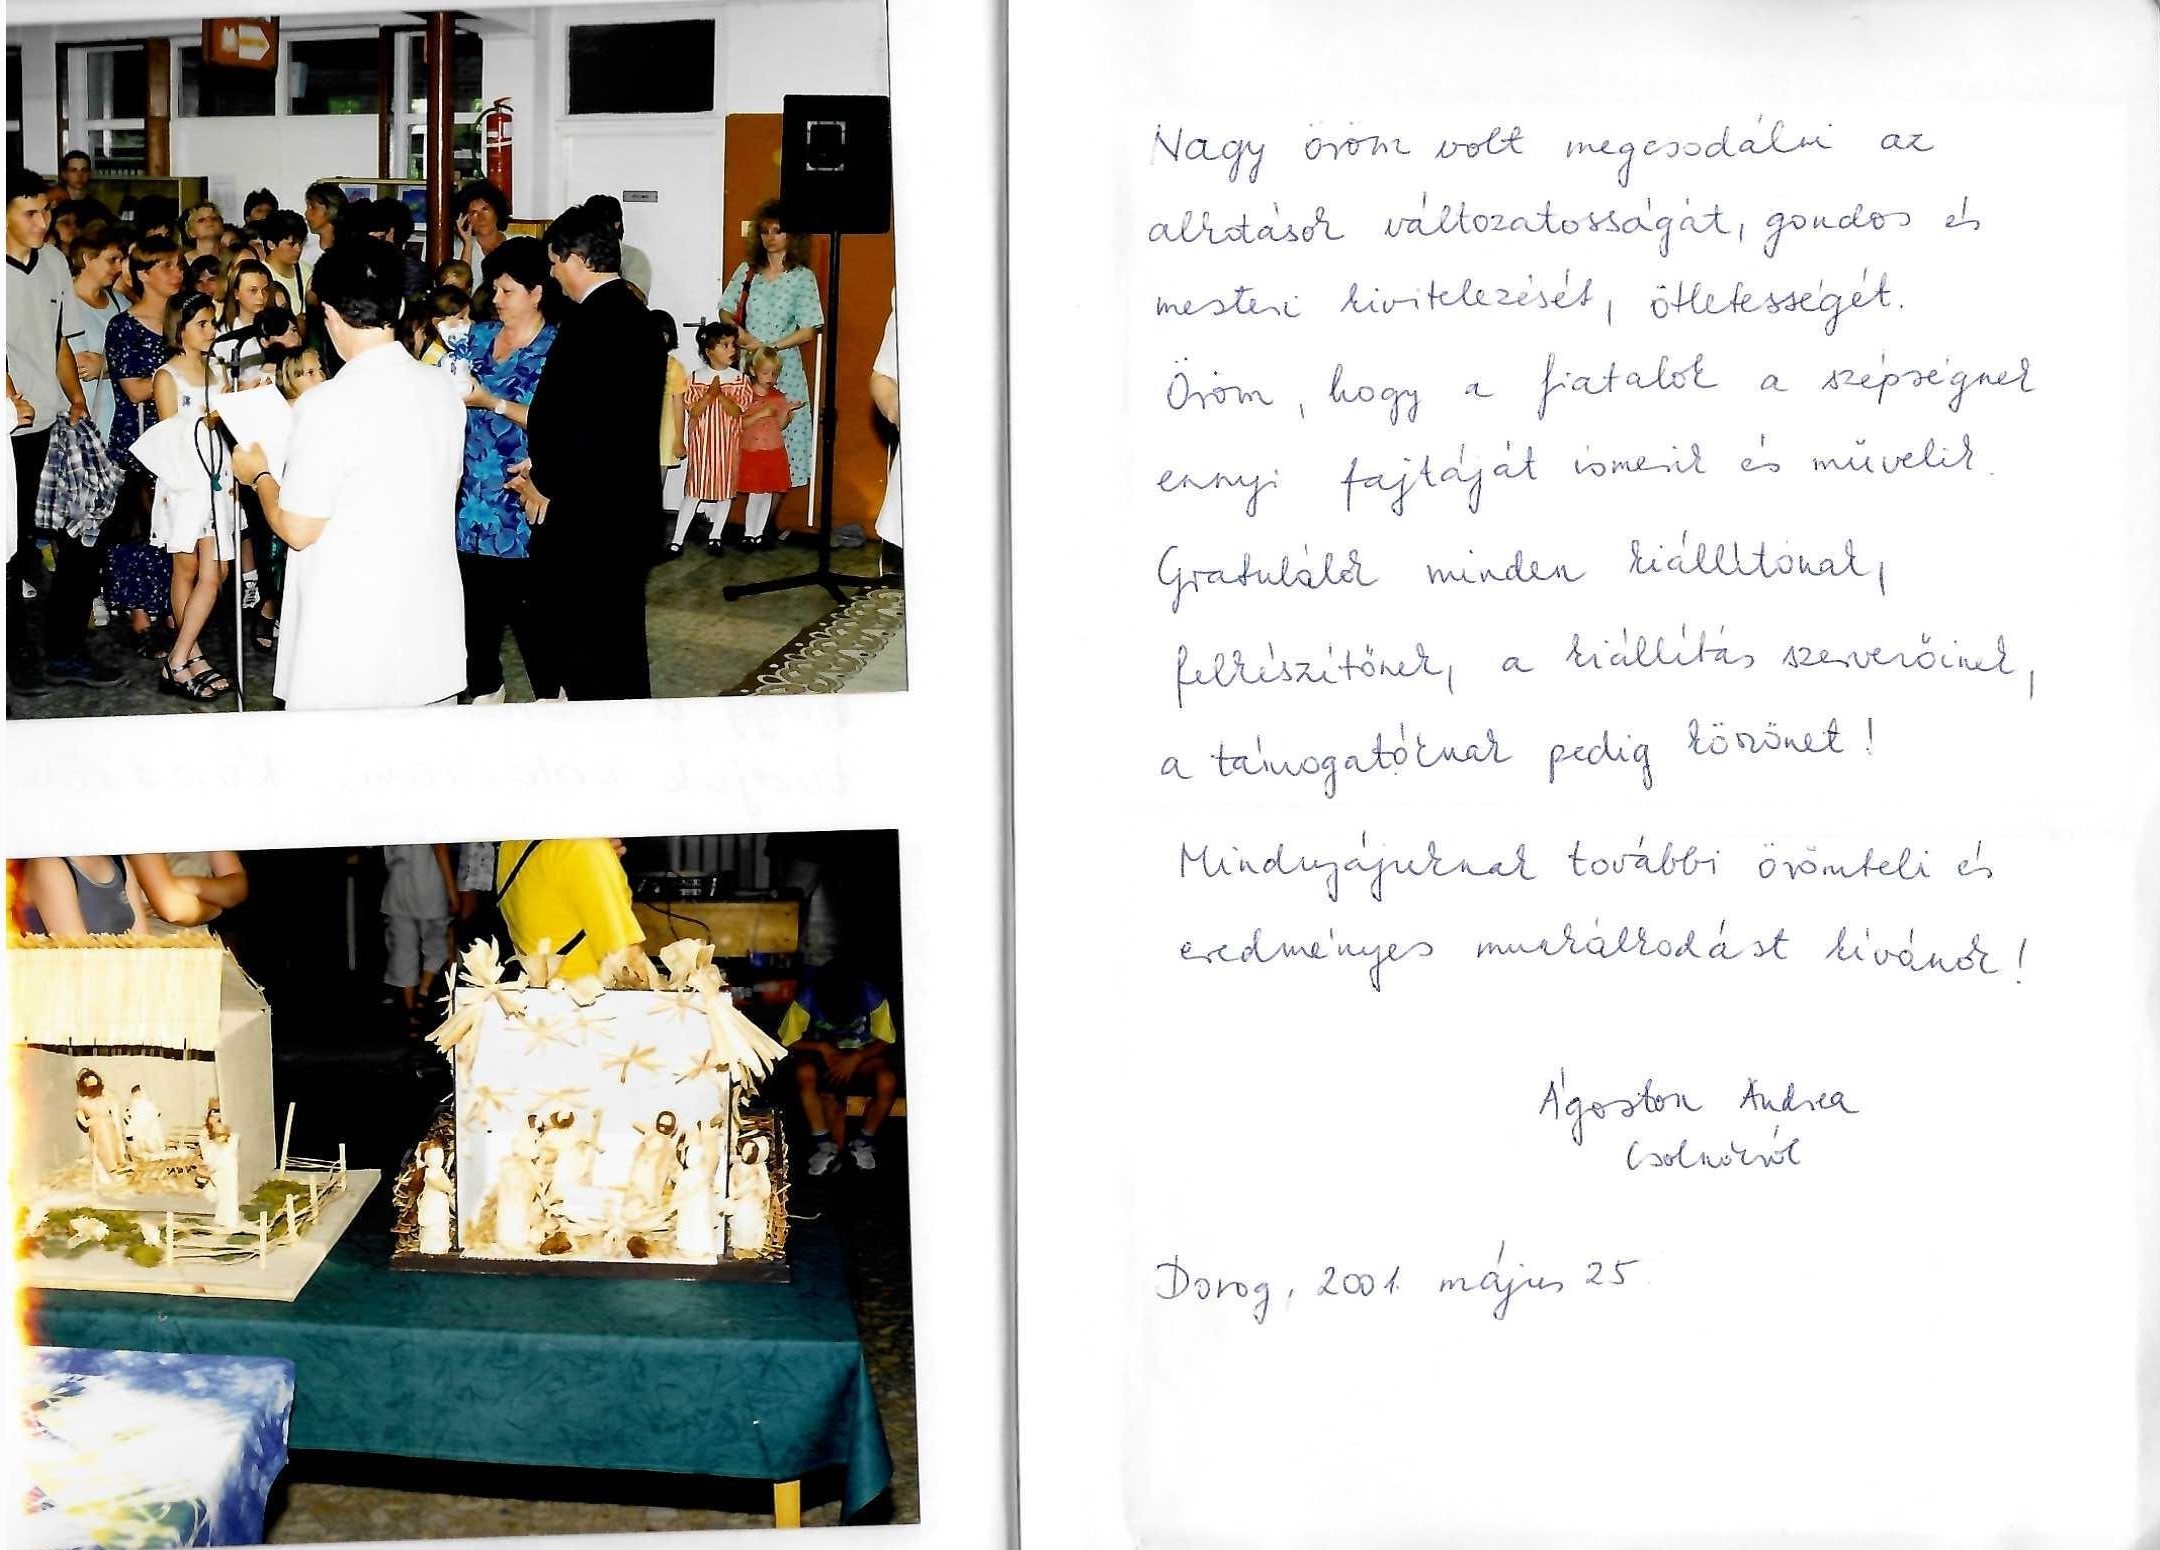 Nagy öröm volt megcsodálni az
alkotások változatosságát, gondos és
mesteri kivitelezését, ötletességét.
Öröm, hogy a fiatalok a szépségnek
ennyi fajtáját ismerik és művelik.
Gratulálok minden kiállítónak,
felkészítőnek, a kiállítás szervezőinek,
a támogatóknak pedig köszönet!
Mindnyájuknak további örömteli és
eredményes munkálkodást kívánok!
Ágoston Andrea
Csolnokról
Dorog, 2001. május 25.